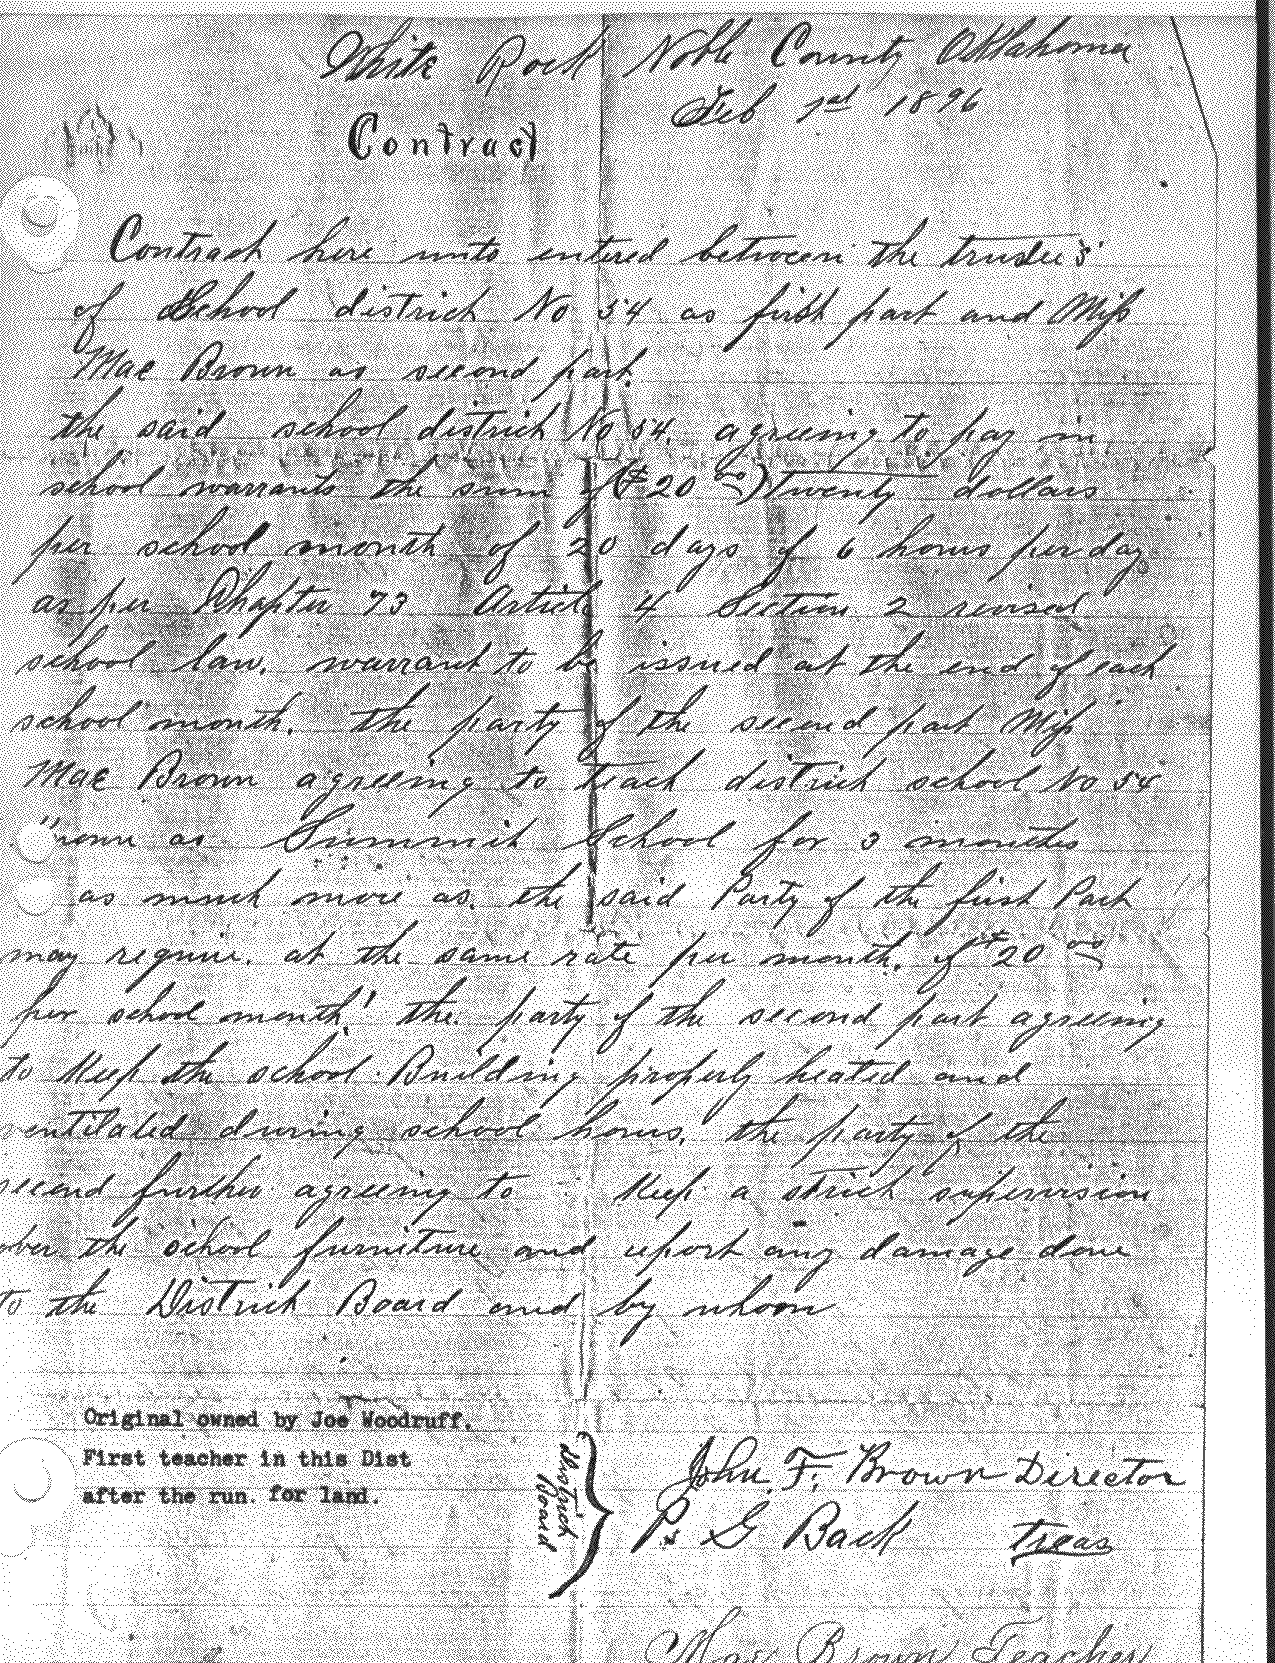 White Rock Noble County Oklahoma
Feb 1st 1896
Contract
Contract here unto entered between the trustee's
of School district No 54 as first part and Miss
Mae Brown as second part.
the said school district No 54. agreeing to pay in
school warrants the sum of ($20 00) Twenty dollars
per school month of 20 days of 6 hours per day
as per Chapter 73 Article 4 Section 2 revised
school law. warrant to be issued at the end of each
school month. the party of the second part Miss
Mae Brown agreeing to teach district school No 54
nown as Summit School for 3 months
as much more as. the said Party of the first Part
may require. at the same rate per month. of $20 00
per school month! the. party of the second part agreeing
to Keep the school Building properly heated and
ventilated during school hours. the party of the
second further agreeing to Keep a strict supervision
over the school furniture and report any damage done
to the District Board and by whoom
Original owned by Joe Woodruff.
First teacher in this Dist
after the run. for land.
District
Board
John. F. Brown Director
P. G Back treas
Mae Brown Teacher